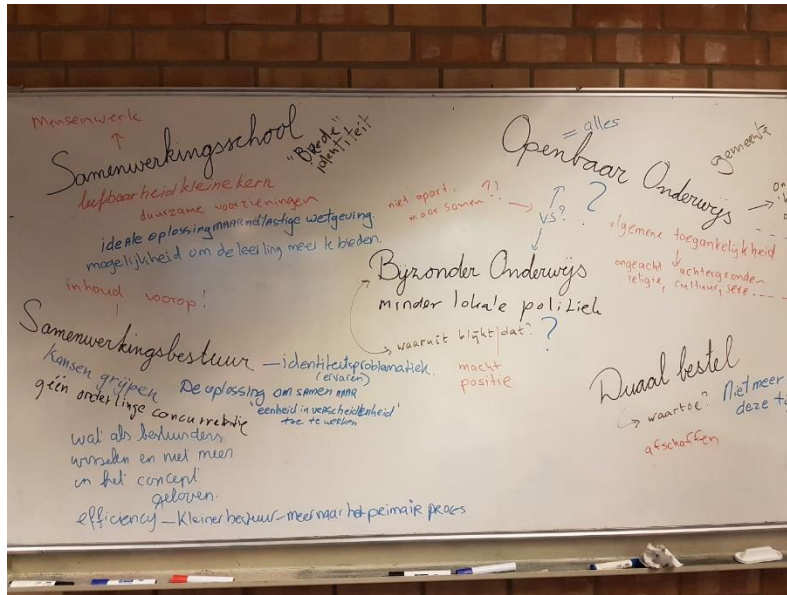 mensenwerk
Samenwerkingsschool
"Brede"
identiteit
leefbaarheid kleine kern
duurzame voorzieningen
ideale oplossing MAAR met lastige wetgeving.
mogelijkheid om de leerling meer te bieden.
inhoud voorop!
Samenwerkingsbestuur – identiteitsproblematiek.
(ervaren)
kansen grijpen
De oplossing om samen MAAR
géén onderlinge concurrentie
'eenheid in verscheidenheid'
toe te werken
wat als bestuurders
wisselen en niet meer
in het concept
geloven.
efficiency – kleiner bestuur – meer naar het primair proces
= alles
Openbaar Onderwijs
gemeente
niet apart,
maar samen?!
VS?
?
algemene toegankelijkheid
ongeacht achtergronden
religie, cultuur, sexe
Bijzonder Onderwijs
minder lokale politiek
waaruit blijkt dat?
?
macht
positie
Duaal bestel
waartoe?
Niet meer
deze
afschaffen